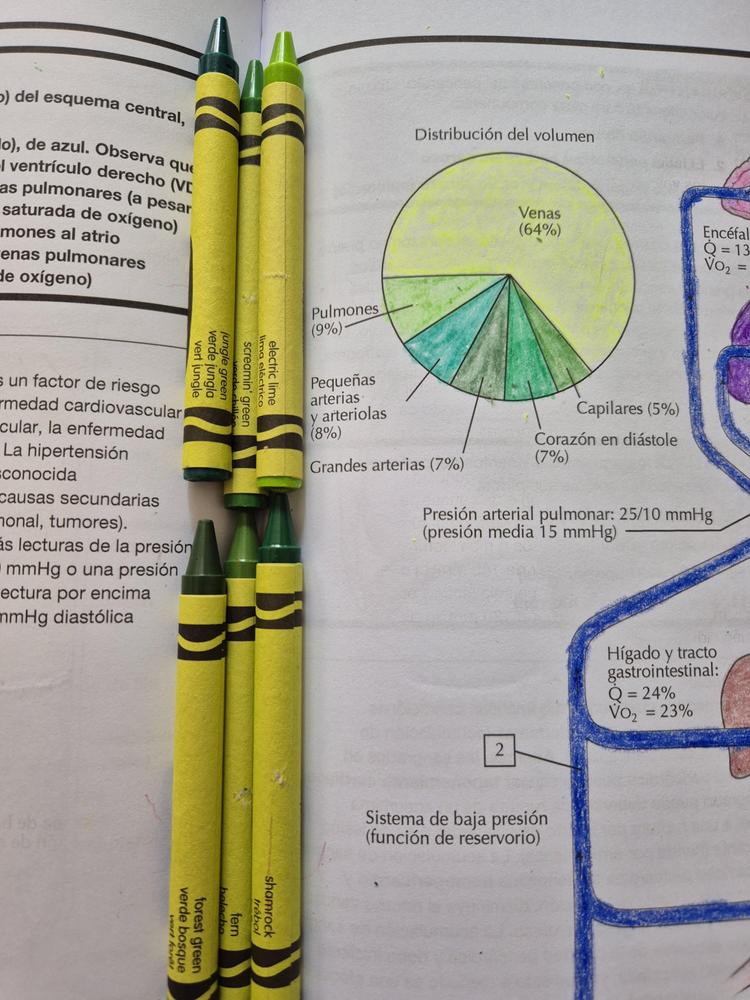 o) del esquema central,
lo), de azul. Observa que
l ventrículo derecho (VD
as pulmonares (a pesar
saturada de oxígeno)
mones al atrio
enas pulmonares
de oxígeno)
s un factor de riesgo
ermedad cardiovascular
cular, la enfermedad
La hipertensión
sconocida
causas secundarias
monal, tumores).
ás lecturas de la presión
mmHg o una presión
ectura por encima
mmHg diastólica
jungle green
verde jungla
vert jungle
screamin' green
electric lime
lima eléctrico
forest green
verde bosque
vert forêt
fern
helecho
shamrock
trébol
Distribución del volumen
Venas
(64%)
Pulmones
(9%)
Pequeñas
arterias
y arteriolas
(8%)
Grandes arterias (7%)
Corazón en diástole
(7%)
Capilares (5%)
Presión arterial pulmonar: 25/10 mmHg
(presión media 15 mmHg)
Encéfal
Q̇ = 13
V̇O₂ =
Hígado y tracto
gastrointestinal:
Q̇ = 24%
V̇O₂ = 23%
2
Sistema de baja presión
(función de reservorio)